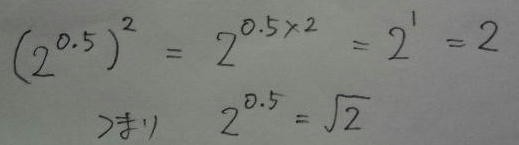 (2^0.5)^2 = 2^0.5×2 = 2^1 = 2
つまり 2^0.5 = √2